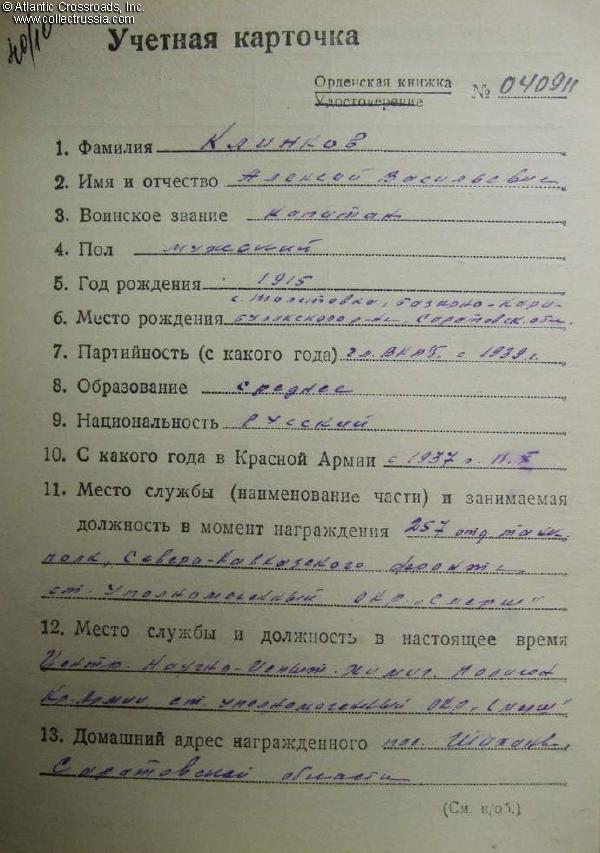 © Atlantic Crossroads, Inc.
www.collectrussia.com
Учетная карточка
Орденская книжка
Удостоверение
№ 040911
1. Фамилия Клинков
2. Имя и отчество Алексей Васильевич
3. Воинское звание капитан
4. Пол мужской
5. Год рождения 1915
6. Место рождения с. Толстовка, Базарно-Кара-
булакского р-на, Саратовск. обл.
7. Партийность (с какого года) чл. ВКПб. с 1939 г.
8. Образование среднее
9. Национальность русский
10. С какого года в Красной Армии с 1937 г.
11. Место службы (наименование части) и занимаемая
должность в момент награждения 257 отд. танк.
полк, Северо-Кавказского фронта
ст. уполномоченный ОКР „Смерш"
12. Место службы и должность в настоящее время
Центр. Научно-Испыт. Химич. Полигон
Кр. Армии ст. уполномоченный ОКР „Смерш"
13. Домашний адрес награжденного пос. Шиханы,
Саратовской области
(См. н/об.)